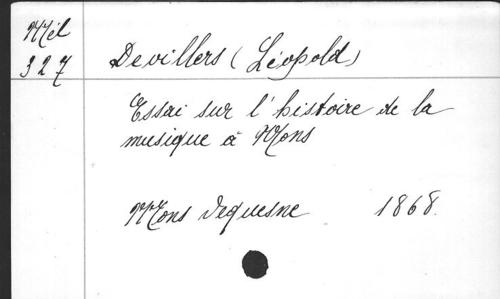 Mél
327
Devillers (Léopold)
Essai sur l'histoire de la
musique à Mons
Mons Dequesne 1868.